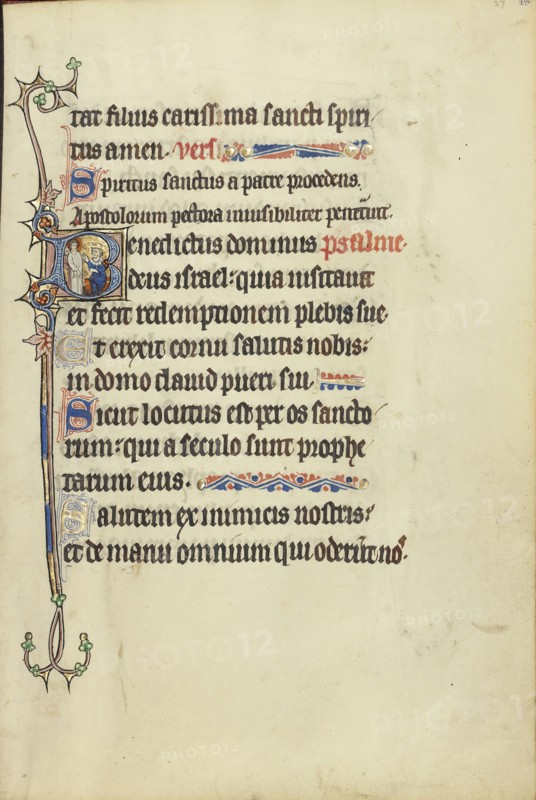 27
tat filius carissima sancti spiri
tus amen. vers.
Spiritus sanctus a patre procedens.
Apostolorum pectora inuisibiliter penetrauit.
Benedictus dominus psalme
deus israel: quia uisitauit
et fecit redemptionem plebis sue.
Et erexit cornu salutis nobis:
in domo dauid pueri sui.
Sicut locutus est per os sancto
rum: qui a seculo sunt prophe
tarum eius.
Salutem ex inimicis nostris:
et de manu omnium qui oderunt nos.
PHOTO12